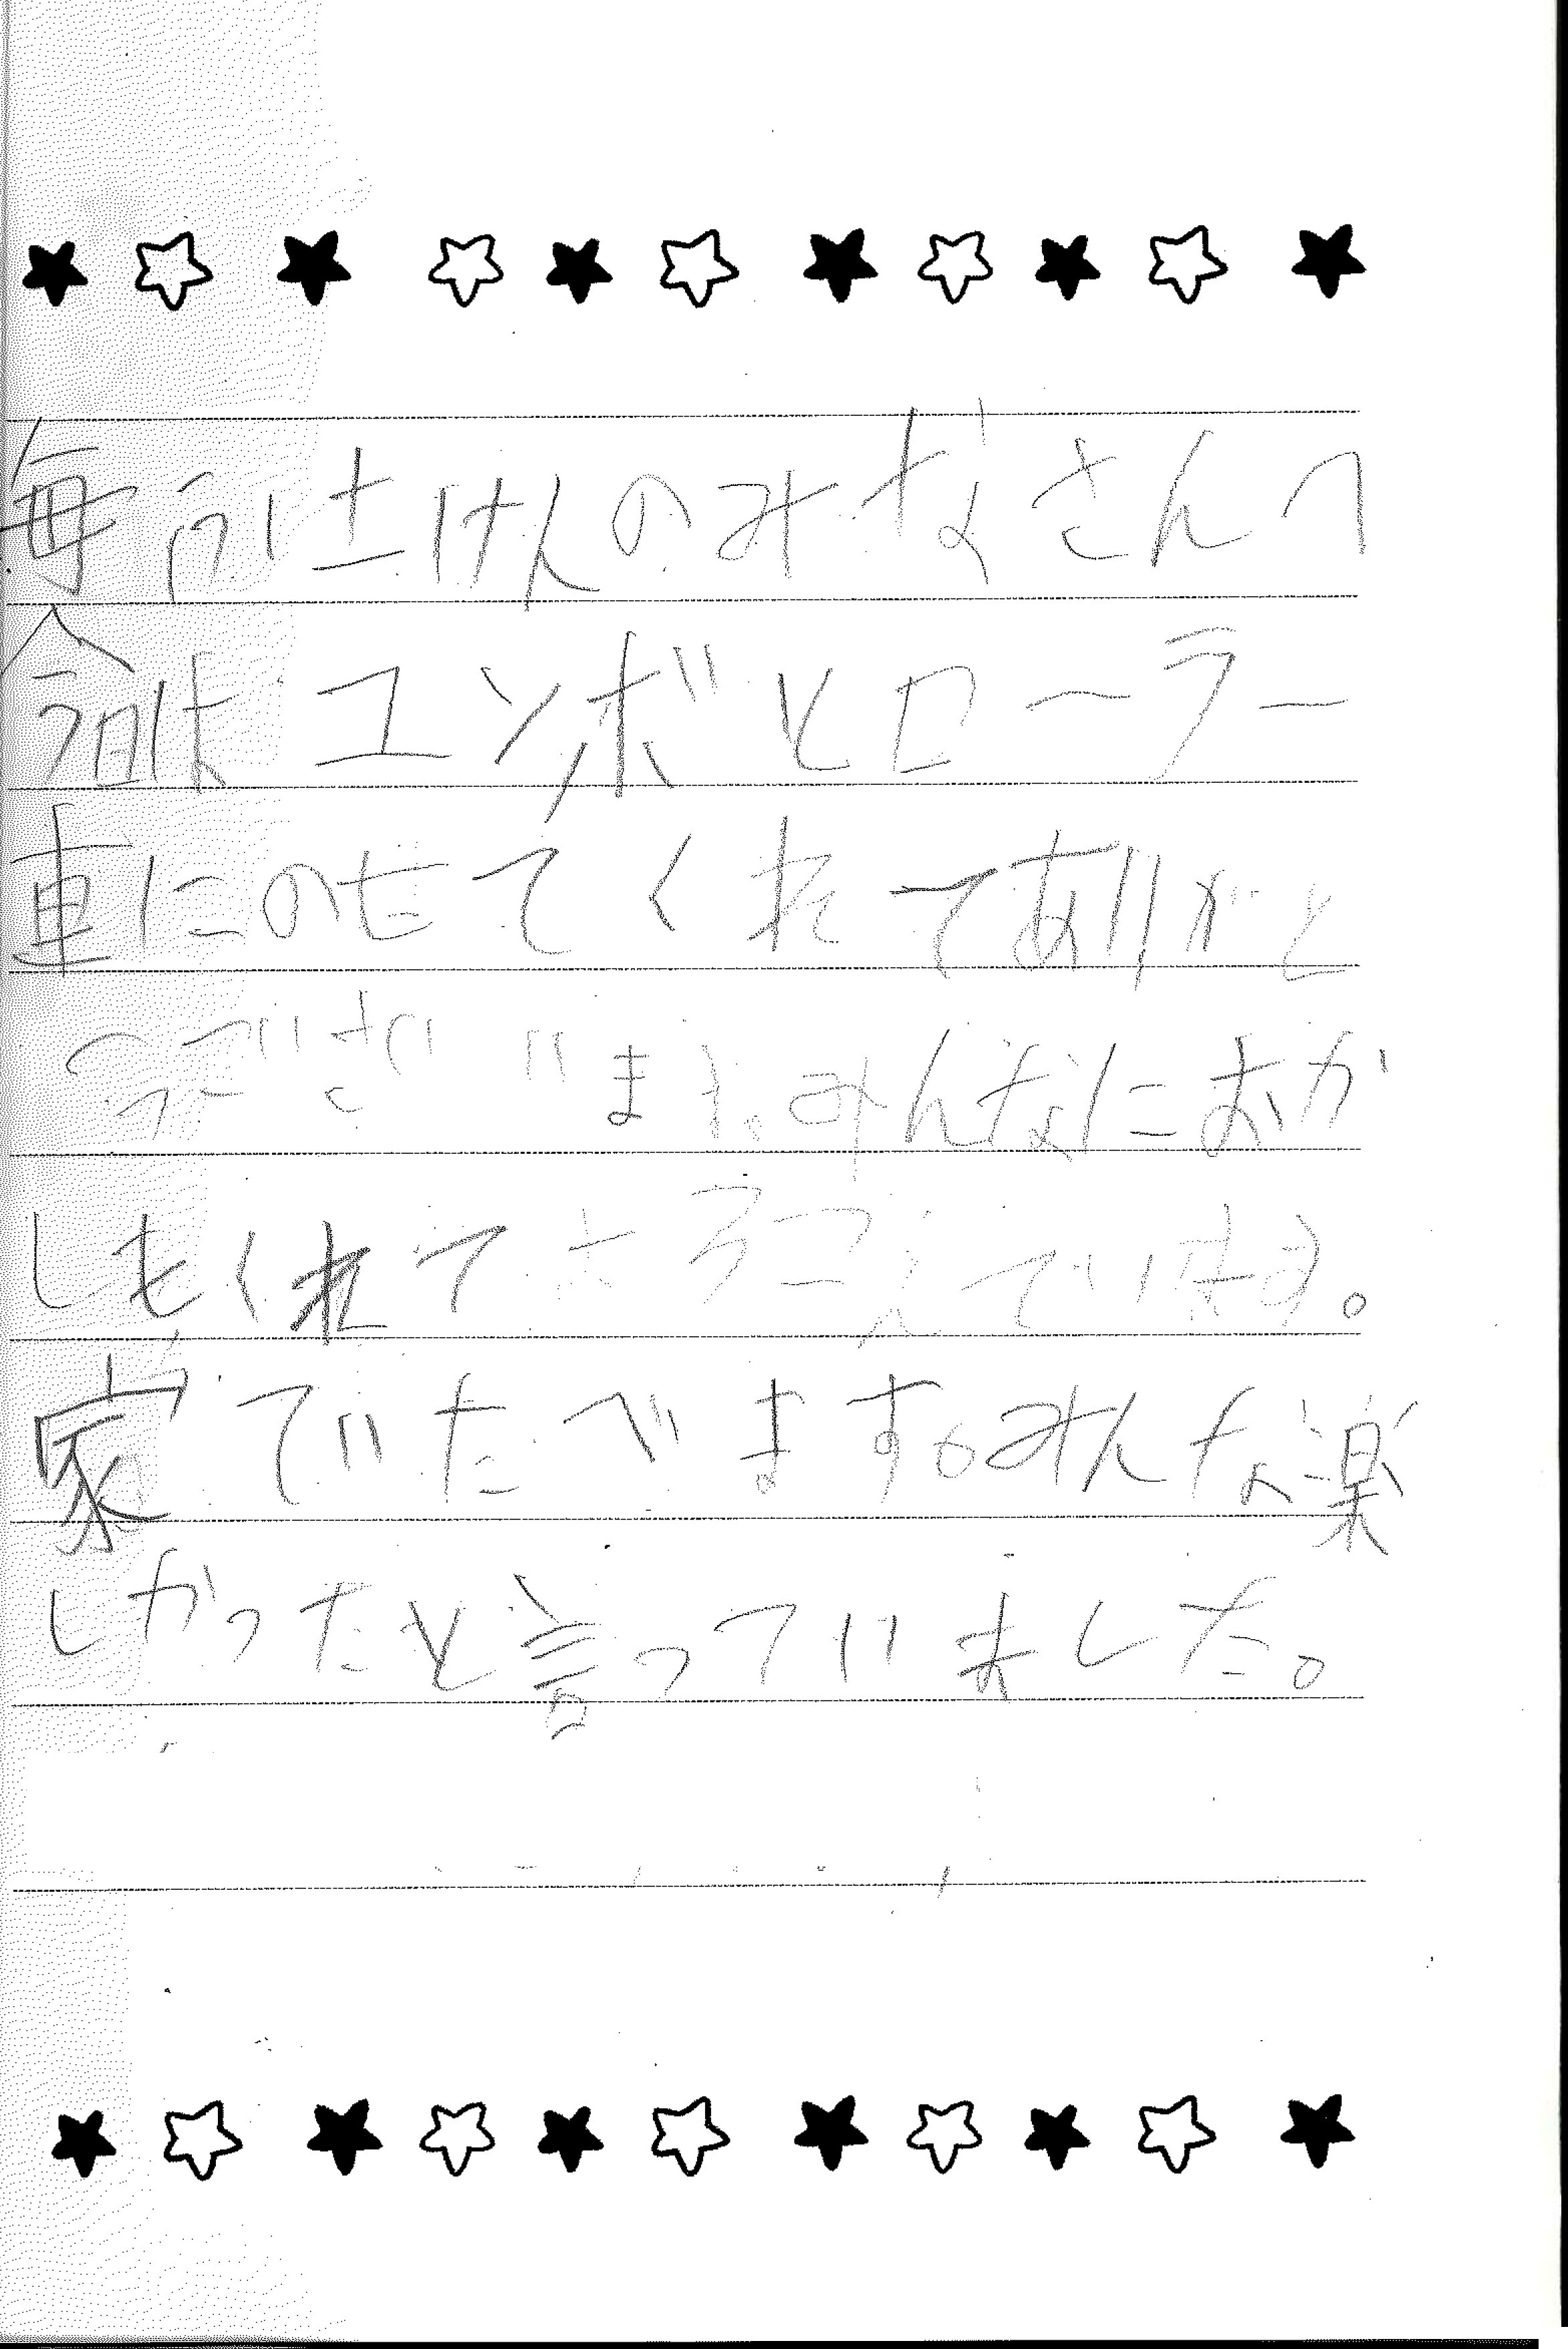 毎川土けんのみなさんへ
今日はユンボとローラー
車にのせてくれてありがと
うございます。みんなにおか
しもくれてよろこんでいます。
家でいただべます。みんな楽
しかったと言っていました。